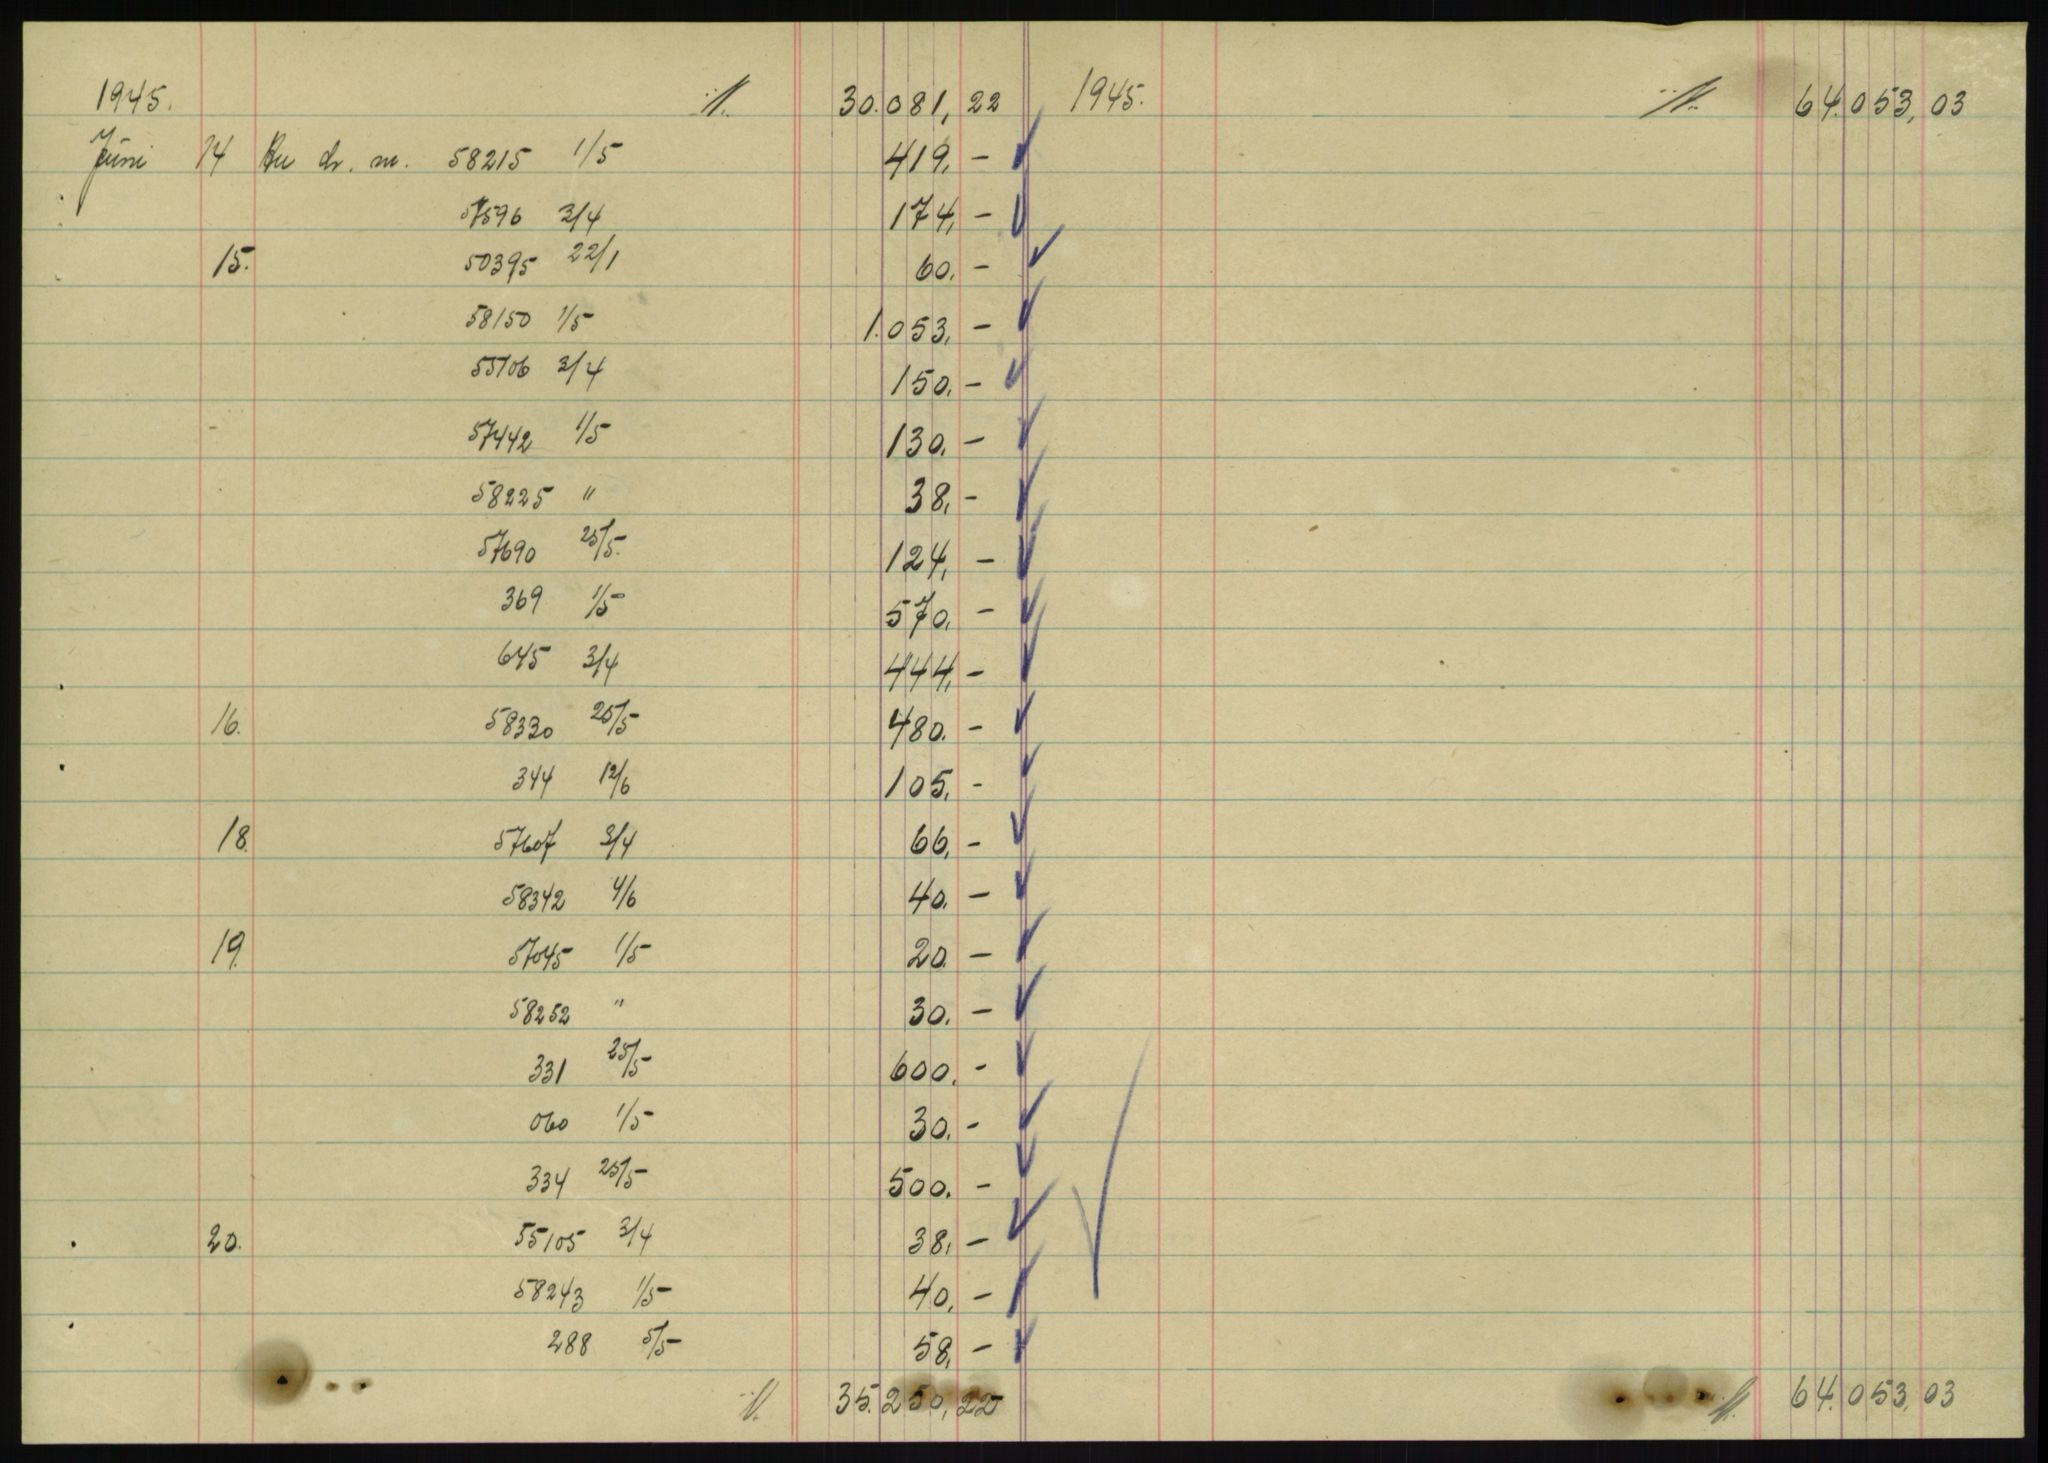 1945. 30.081,22 1945. 64.053,03
Juni 14 dr. 58215 1/5 419,-
57596 3/4 174,-
15. 50395 22/1 60,-
58150 1/5 1.053,-
55106 3/4 150,-
57442 1/5 130,-
58225 " 38,-
57690 25/5. 124,-
369 1/5 570,-
645 3/4 444,-
16. 58330 25/5 480,-
344 12/6 105,-
18. 57607 3/4 66,-
58342 4/6 40,-
19. 57045 1/5 20,-
58252 " 30,-
331 25/5 600,-
060 1/5 30,-
334 25/5 500,-
20. 55105 3/4 38,-
58243 1/5 40,-
288 5/5 58,-
35.250,22 64.053,03